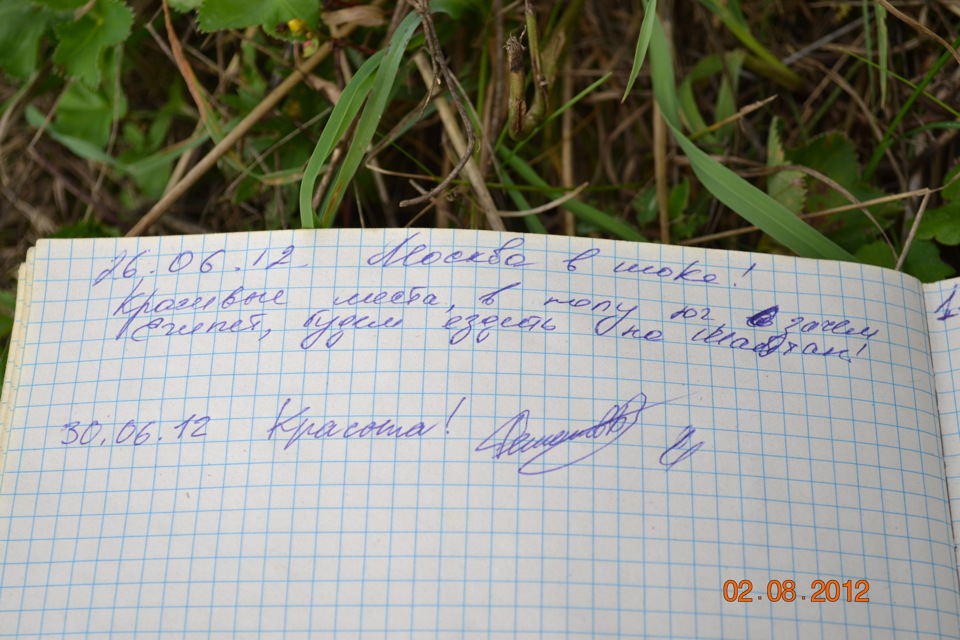 26.06.12. Москва в шоке!
Красивые места, в попу юг зачем
Египет, будем ездить на Шабтан!
30.06.12 Красота!
02.08.2012